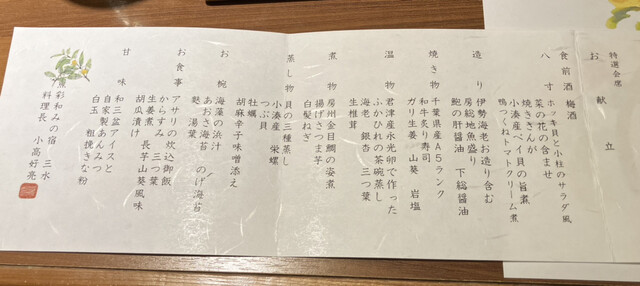 特選会席
お献立
食前酒 梅酒
八寸 ホッキ貝と小柱のサラダ風
菜の花の含ませ
焼きぎんが
小湊産ベイ貝の旨煮
鴨つくねトマトクリーム煮
造り 伊勢海老お造り含む
房総地魚盛り
鮑の肝醤油 下総醤油
焼き物 千葉県産A5ランク
和牛炙り寿司
ガリ生姜 山葵 岩塩
温物 君津産水光卵で作った
ふかひれの茶碗蒸し
海老 銀杏 三つ葉
生椎茸
煮物 房州金目鯛の姿煮
揚げさつま芋
白髪ねぎ
蒸し物 貝の三種蒸し
小湊産 栄螺
つぶ貝
牡蠣
胡麻辛子味噌添え
お椀 海藻の浜汁
あおさ海苔 のげ海苔
麩 湯葉
お食事 アサリの炊込御飯
からすみ 三つ葉
生姜煮
胡瓜漬け 長芋山葵風味
甘味 和三盆アイスと
自家製あんみつ
白玉 粗挽きな粉
魚彩和みの宿 三水
料理長 小高好亮